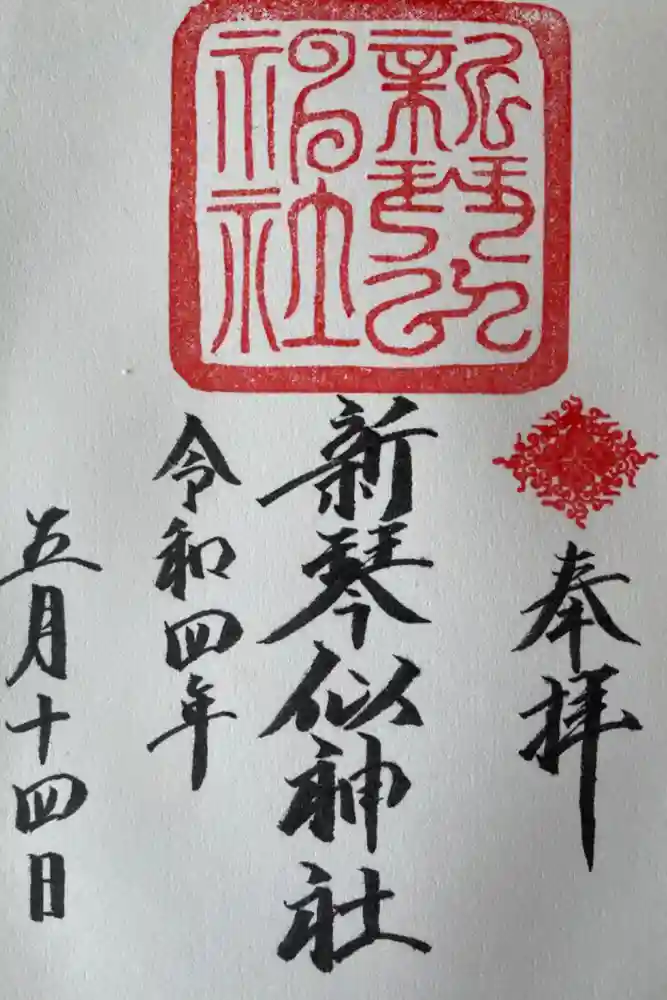 新琴似
神社
奉拝
新琴似神社
令和四年
五月十四日